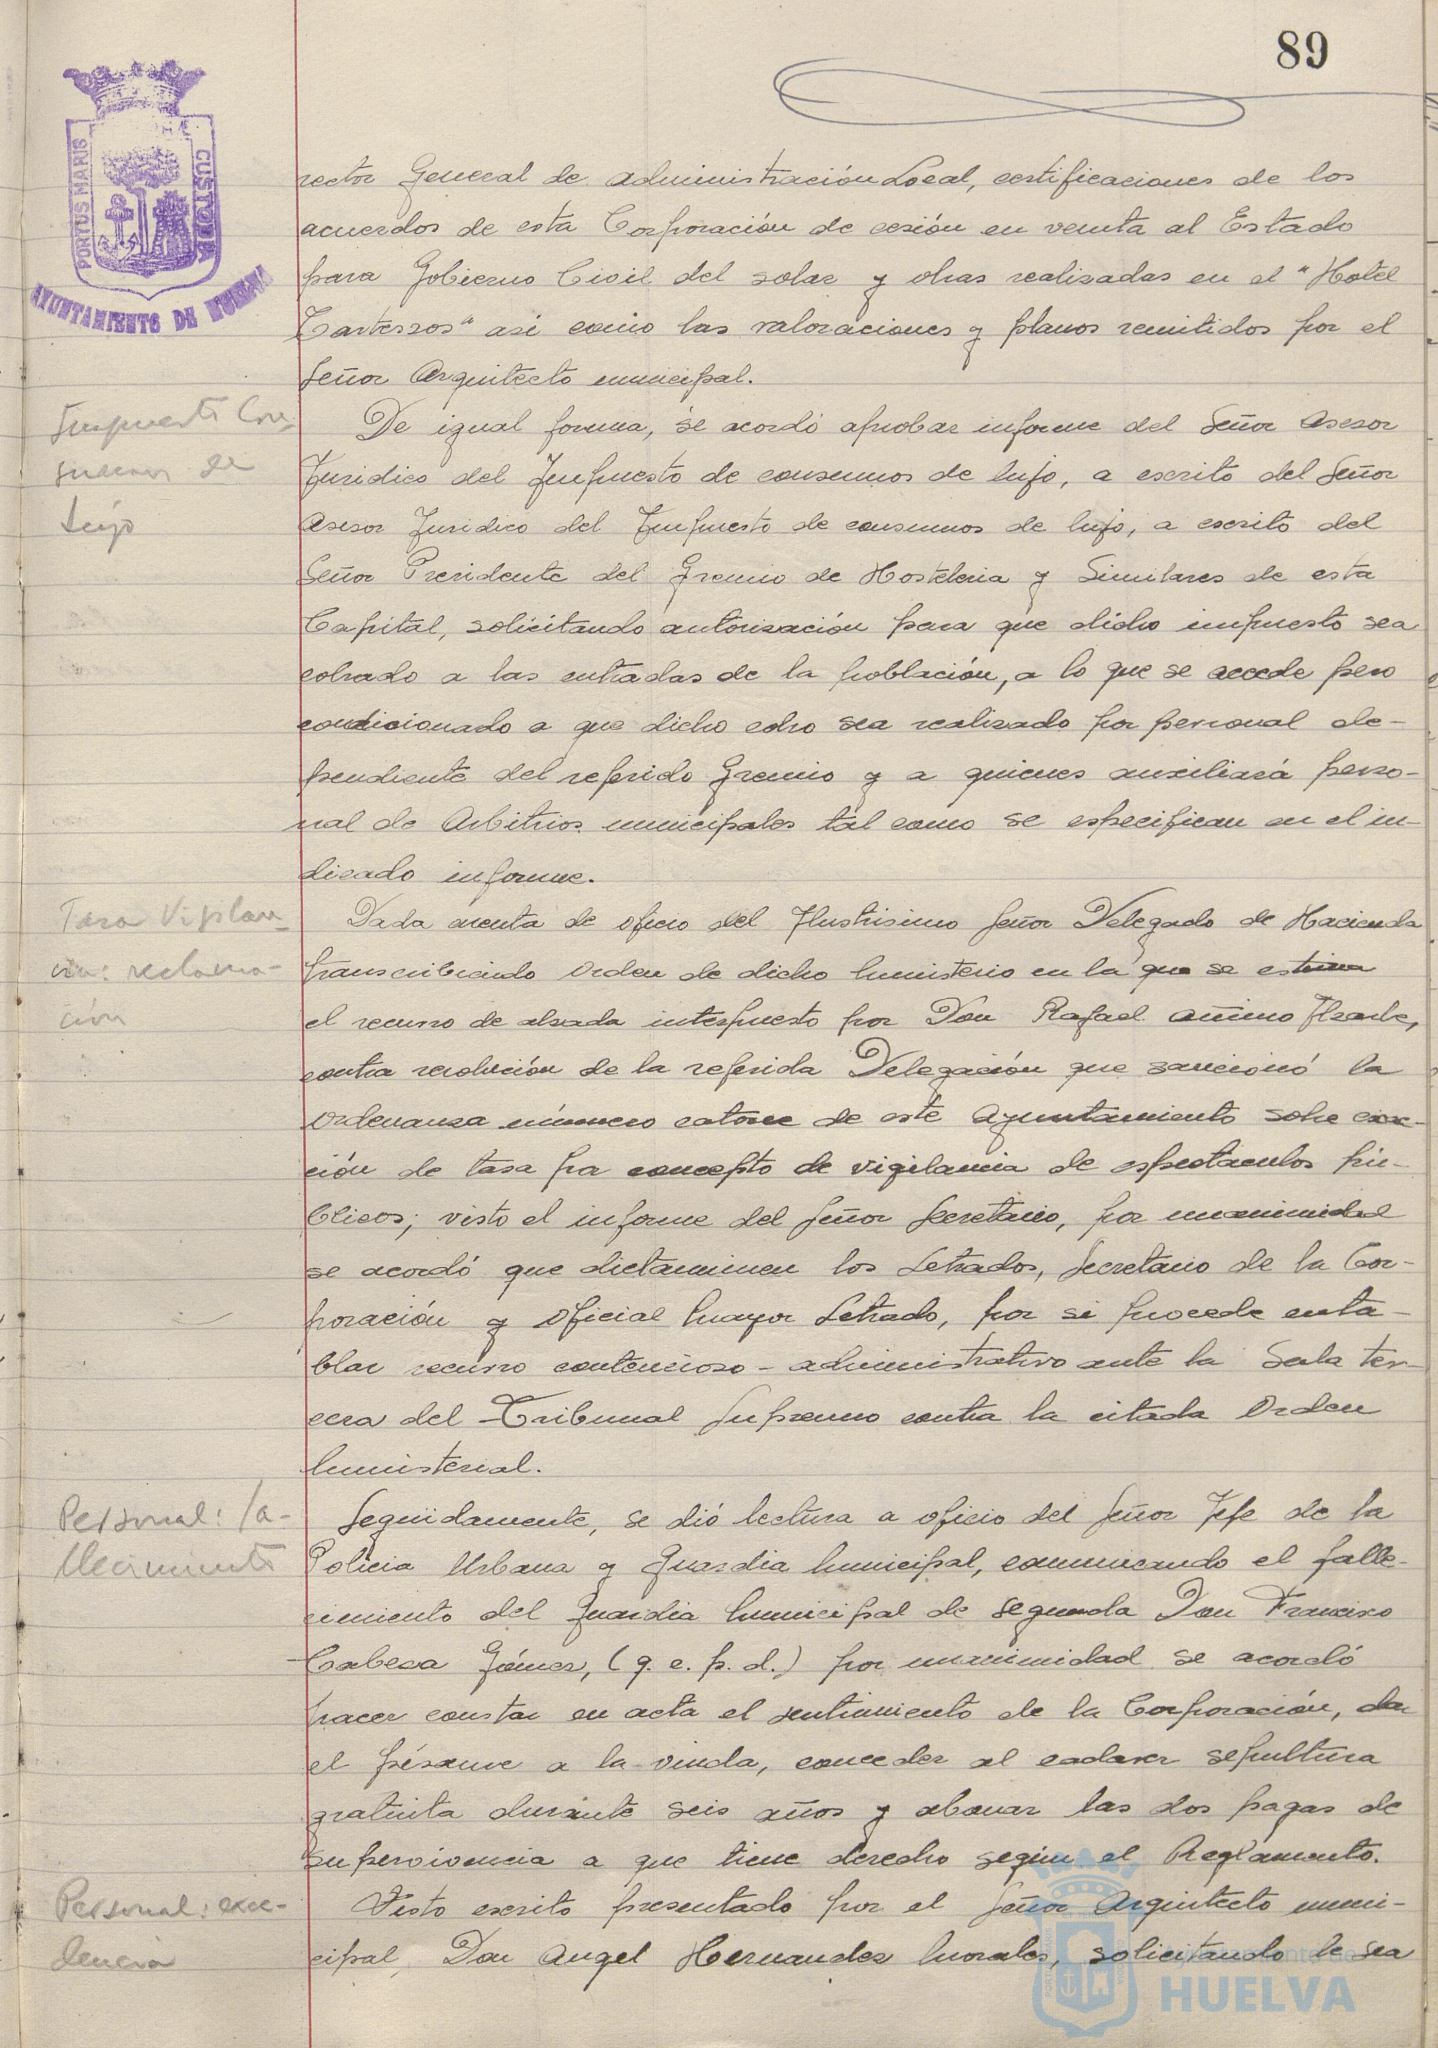 89
PORTUS MARIS
CUSTODIA
AYUNTAMIENTO DE HUELVA
rector General de administración Local, certificaciones de los
acuerdos de esta Corporación de cesión en venta al Estado
para Gobierno Civil del solar y obras realizadas en el "Hotel
Tartessos" asi como las valoraciones y planos remitidos por el
Señor Arquitecto municipal.
Impuesto Con-
sumos de
Lujo
De igual forma, se acordó aprobar informe del Señor Asesor
Juridico del Impuesto de consumos de lujo, a escrito del Señor
Asesor Juridico del Impuesto de consumos de lujo, a escrito del
Señor Presidente del Gremio de Hosteleria y Similares de esta
Capital, solicitando autorización para que dicho impuesto sea
cobrado a las entradas de la población, a lo que se accede pero
condicionado a que dicho cobro sea realizado por personal de-
pendiente del referido Gremio y a quienes auxiliará perso-
nal de Arbitrios municipales tal como se especifican en el in-
dicado informe.
Tasa Vigilan-
cia: reclama-
ción
Dada cuenta de oficio del Ilustrisimo Señor Delegado de Hacienda
transcribiendo Orden de dicho Ministerio en la que se estima
el recurso de alzada interpuesto por Don Rafael
contra resolución de la referida Delegación que sancionó la
Ordenanza número catorce de este Ayuntamiento sobre exac-
ción de tasa por concepto de vigilancia de espectaculos pú-
blicos; visto el informe del Señor Secretario, por unanimidad
se acordó que dictaminen los Letrados, Secretario de la Cor-
poración y Oficial Mayor Letrado, por si procede enta-
blar recurso contencioso-administrativo ante la Sala ter-
cera del Tribunal Supremo contra la citada Orden
Ministerial.
Personal: fa-
llecimiento
Seguidamente, se dió lectura a oficio del Señor Jefe de la
Policia Urbana y Guardia Municipal, comunicando el falle-
cimiento del Guardia Municipal de segunda Don Francisco
Cabeza Gómez, (q. e. p. d.) por unanimidad se acordó
hacer constar en acta el sentimiento de la Corporación, dar
el pésame a la viuda, conceder al cadaver sepultura
gratuita durante seis años y abonar las dos pagas de
supervivencia a que tiene derecho según el Reglamento.
Personal: exce-
dencia
Visto escrito presentado por el Señor Arquitecto muni-
cipal, Don Angel Hernandez Morales, solicitando le sea
HUELVA